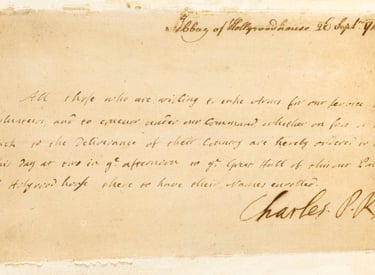 Abbay of Hollyroodhouse 26 Sept
All those who are willing to take Arms for our service
and to concur under our Command whether on foot
to the Deliverance of their Country are hereby ordered
Day at two in yᵉ afternoon to yᵉ Great Hall of this our
Holyrood house there to have their Names enrolled.
Charles P. R.